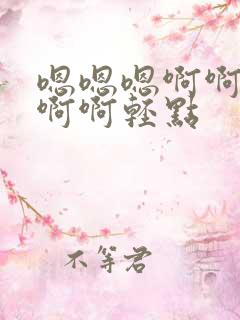 嗯嗯嗯啊啊
啊啊輕點
不等君